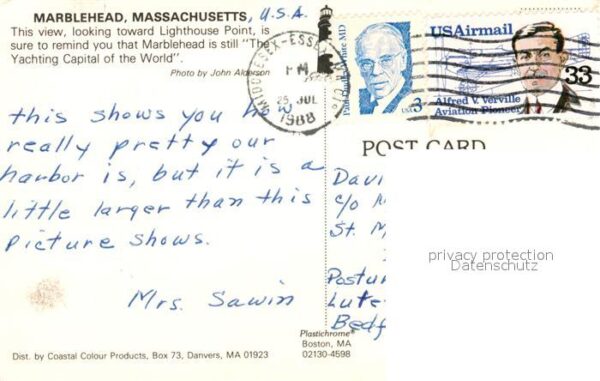 MARBLEHEAD, MASSACHUSETTS, U.S.A.
This view, looking toward Lighthouse Point, is
sure to remind you that Marblehead is still "The
Yachting Capital of the World".
Photo by John Alderson
this shows you how
really pretty our
harbor is, but it is a
little larger than this
picture shows.
Mrs. Sawin
Dist. by Coastal Colour Products, Box 73, Danvers, MA 01923
Plastichrome®
Boston, MA
02130-4598
MIDDLESEX-ESSEX
PM
25 JUL
1988
Paul Dudley White MD
USA 3
USAirmail
33
Alfred V. Verville
Aviation Pioneer
POST CARD
Davi
c/o M
St. M
Postur
Lute
Bedf
privacy protection
Datenschutz